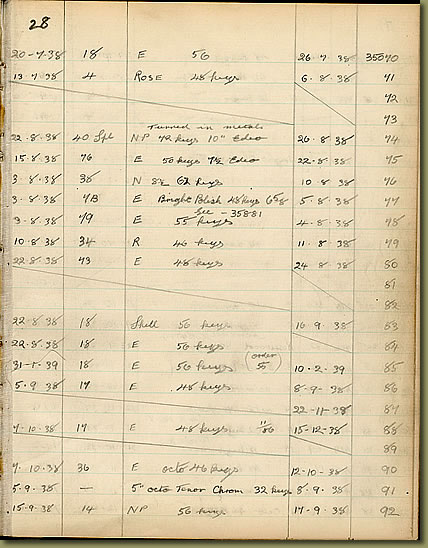 28
20-7-38 18 E 56 26 7 38 35070
13 7 38 4 ROSE 48 keys 6 8 38 71
72
73
Turned in metals
22 8 38 40 Spl NP 72 keys 10" Edeo 26 8 38 74
15 8 38 76 E 50 keys 7½ Edeo 22 8 38 75
3 8 38 38 N 8½ 62 keys 10 8 38 76
3 8 38 7B E Bright Polish 48 keys 5 8 38 77
See - 35881
3 8 38 79 E 55 keys 4 8 38 78
10 8 38 34 R 46 keys 11 8 38 79
22 8 38 73 E 48 keys 24 8 38 80
81
82
22 8 38 18 Shell 56 keys 16 9 38 83
22 8 38 18 E 56 keys 84
order
31-1-39 18 E 56 keys 55 10-2-39 85
5-9 38 17 E 48 keys 8-9-38 86
22-11-38 87
7-10-38 17 E 48 keys 11/86 15-12-38 88
89
7 10-38 36 E octo 46 keys 12-10-38 90
5-9-38 — 5" octo Tenor Chrom 32 keys 8 9 38 91
15-9-38 14 NP 56 keys 17 9 38 92